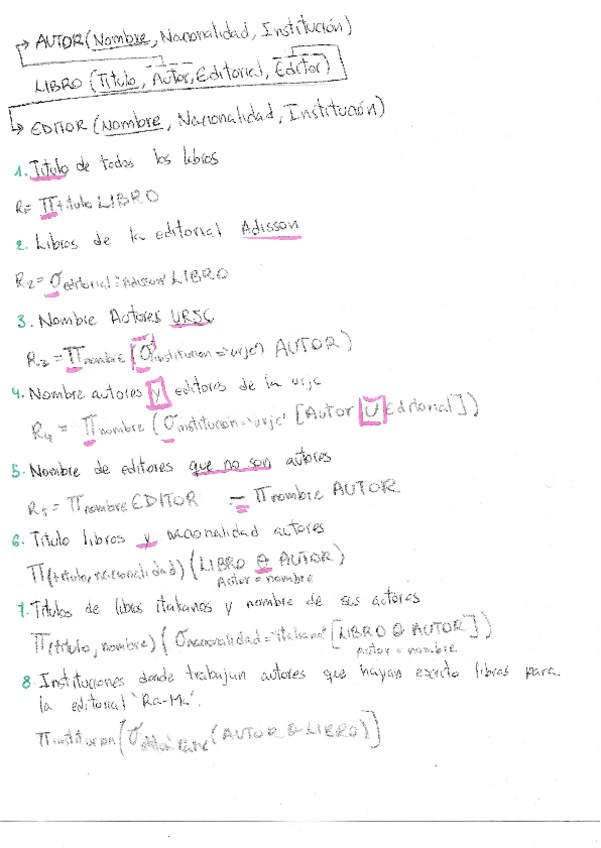 AUTOR (Nombre, Nacionalidad, Institución)
LIBRO (Título, Autor, Editorial, Editor)
EDITOR (Nombre, Nacionalidad, Institución)
1. Titulo de todos los libros
R1= π titulo LIBRO
2. Libros de la editorial Adisson
R2= σ editorial='Adisson' LIBRO
3. Nombre Autores URJC
R3 = π nombre (σ institucion='urjc') AUTOR)
4. Nombre autores y editores de la urjc
R4 = π nombre (σ institución='urjc' [Autor ∪ Editorial])
5. Nombre de editores que no son autores
R5 = π nombre EDITOR - π nombre AUTOR
6. Titulo libros y nacionalidad autores
π (titulo, nacionalidad) (LIBRO θ AUTOR)
Autor = nombre
7. Titulos de libros italianos y nombre de sus autores
π (titulo, nombre) (σ nacionalidad='italiano' [LIBRO θ AUTOR])
autor = nombre
8. Instituciones donde trabajan autores que hayan escrito libros para
la editorial 'Ra-Ma'.
π institucion (σ (AUTOR θ LIBRO)]